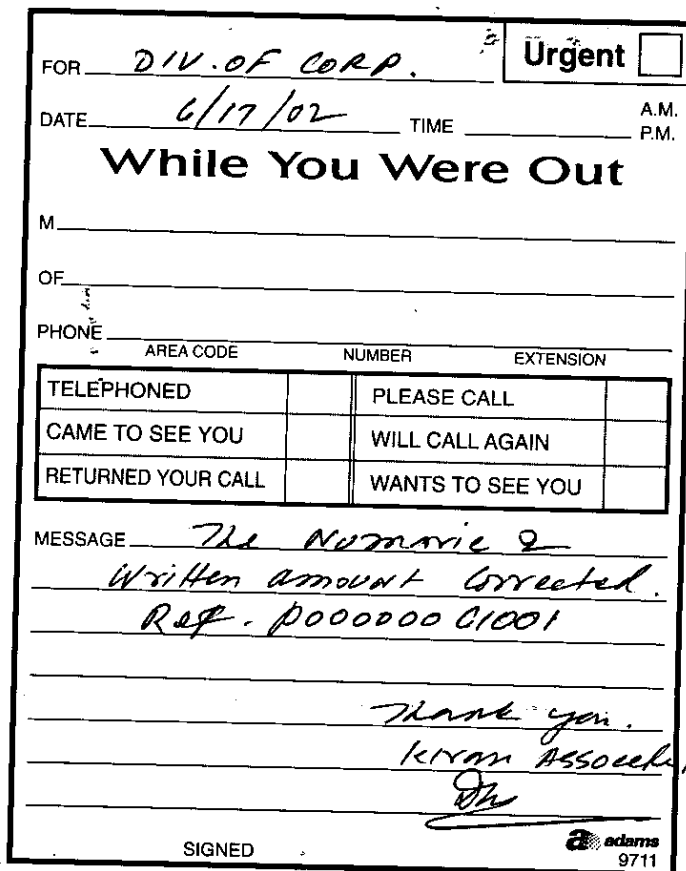 Urgent
FOR DIV. OF CORP.
DATE 6/17/02 TIME A.M.
P.M.
While You Were Out
M
OF
PHONE
AREA CODE NUMBER EXTENSION
TELEPHONED PLEASE CALL
CAME TO SEE YOU WILL CALL AGAIN
RETURNED YOUR CALL WANTS TO SEE YOU
MESSAGE The Numaric &
Written amount Corrected.
Ref. P000000 C1001
Thank you.
Kiran
SIGNED
adams
9711